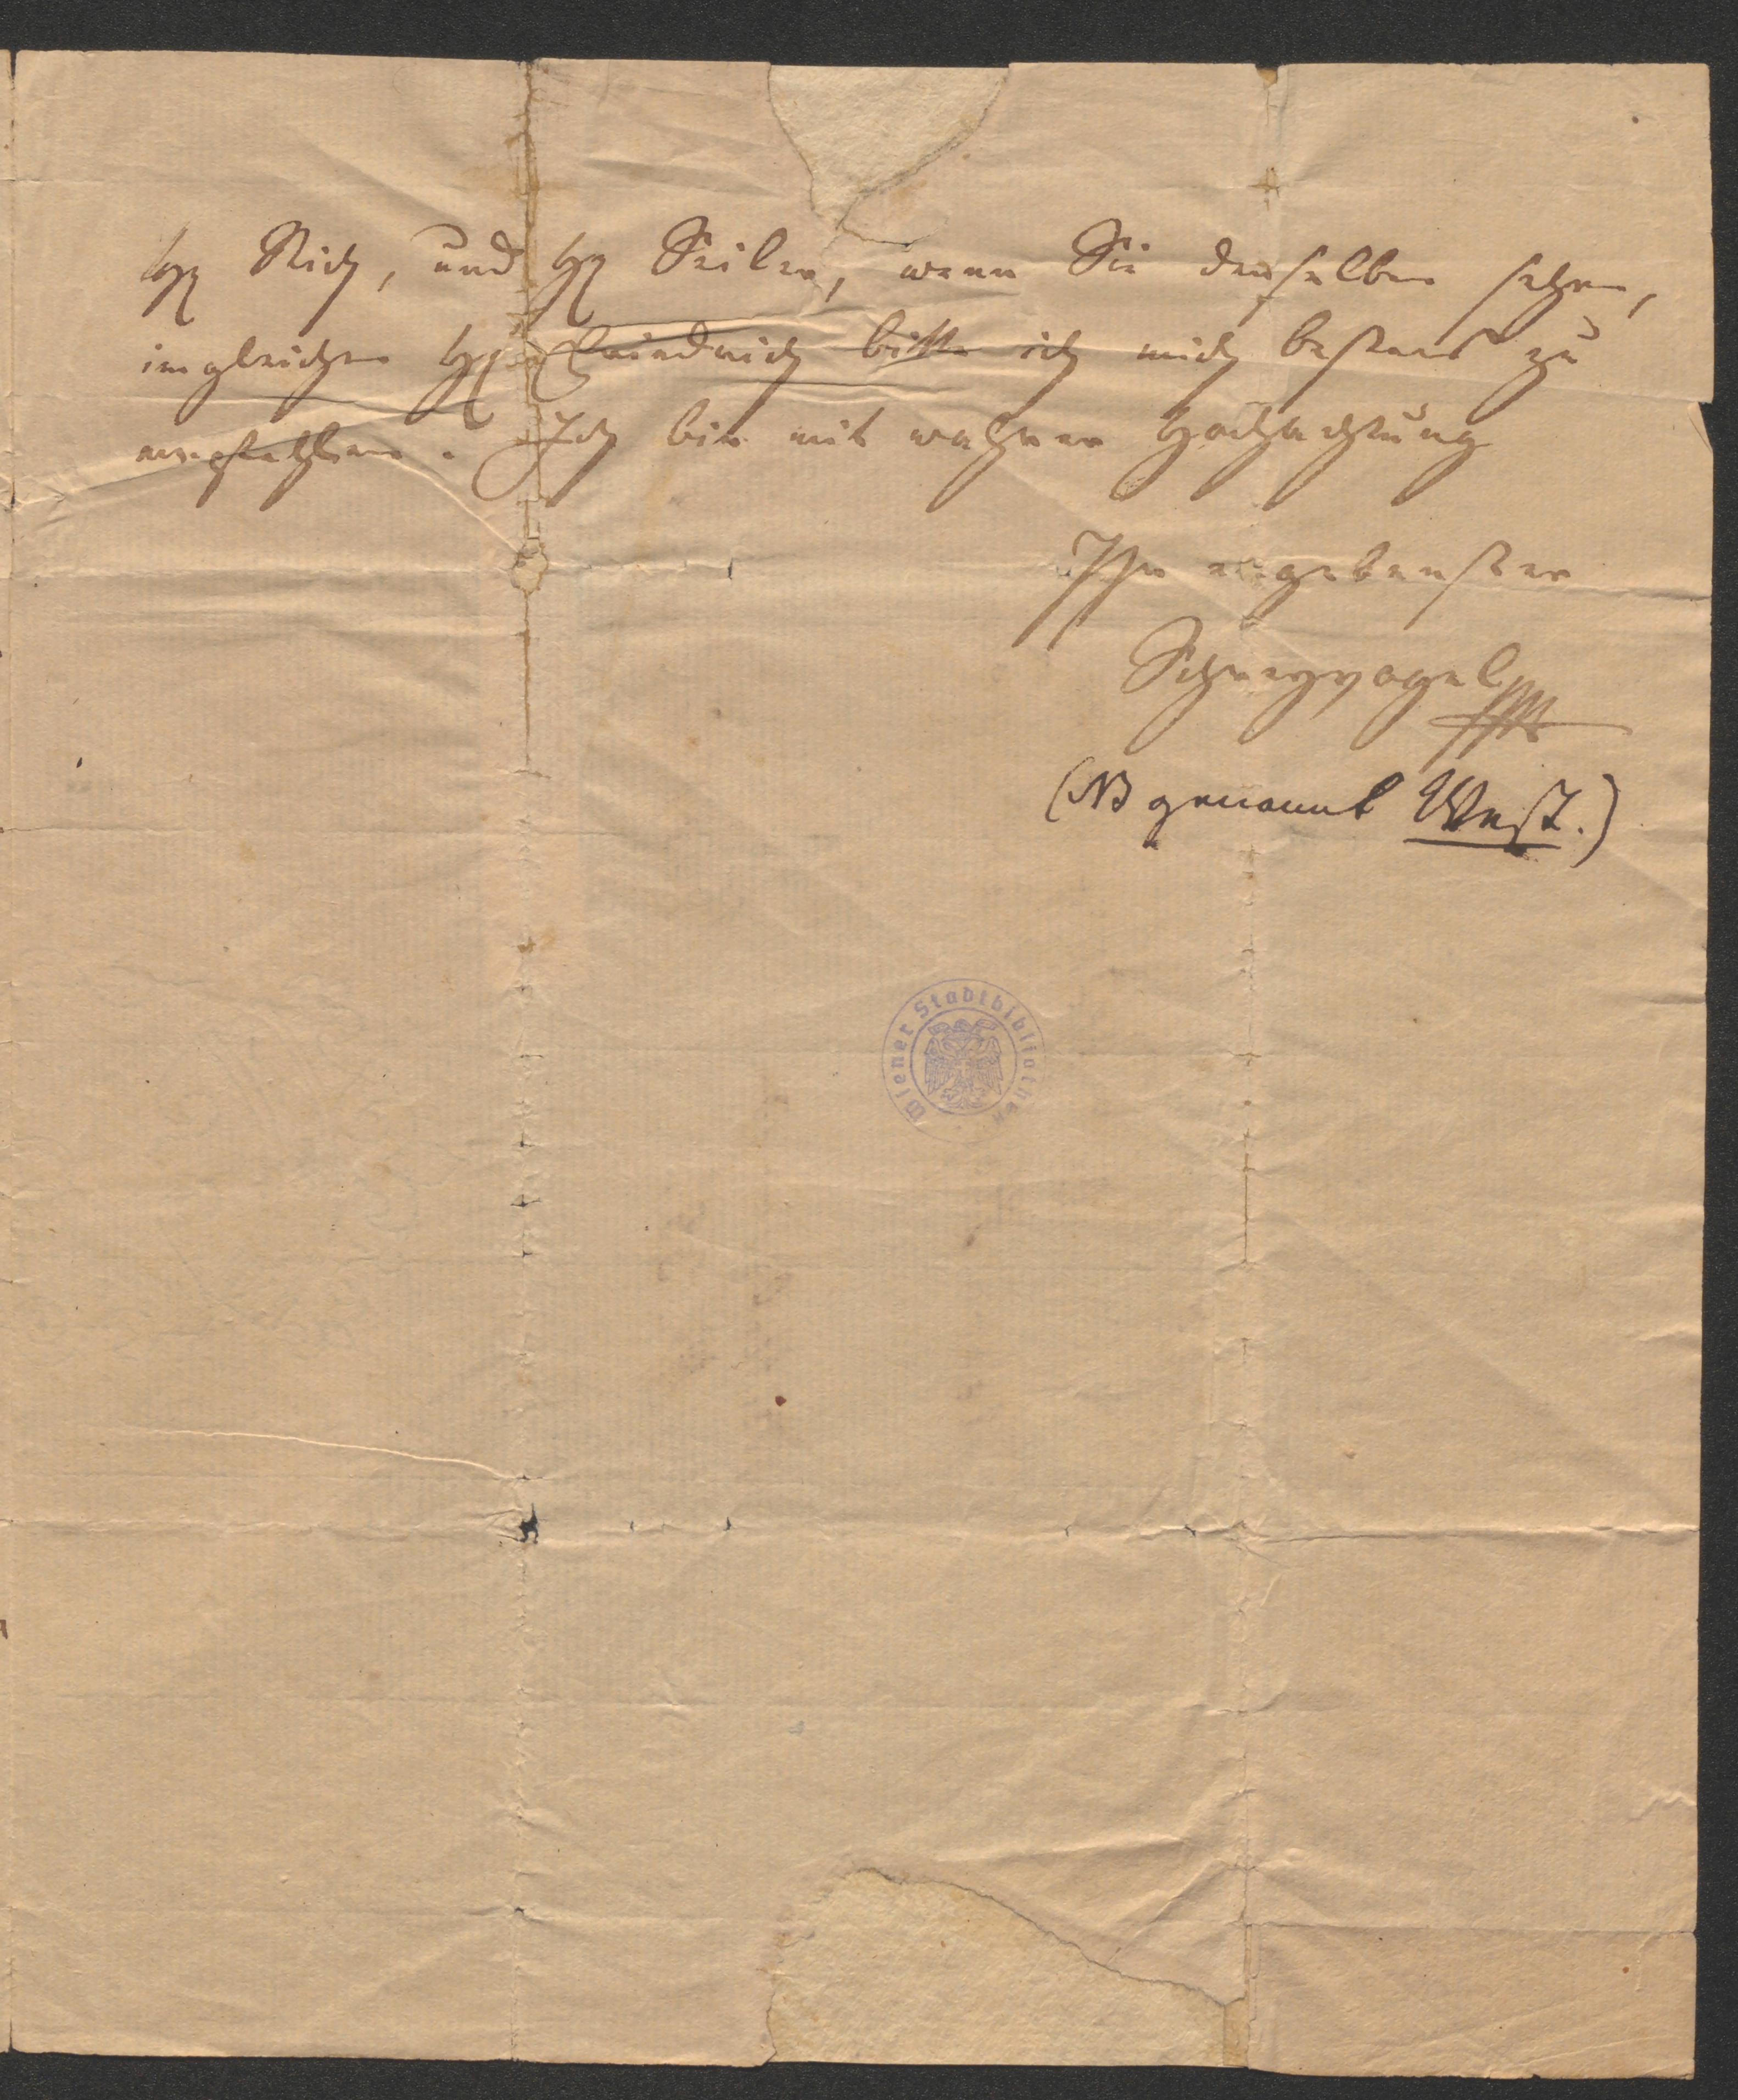 Hr Rich, und Hr Seiler, wenn Sie denselben sehen,
imgleichen Hr Friedrich bitte ich mich bestens zu
empfehlen. Ich bin mit wahrer Hochachtung
Ihr ergebenster
Schreyvogel
(NB genannt West.)
Wiener Stadtbibliothek